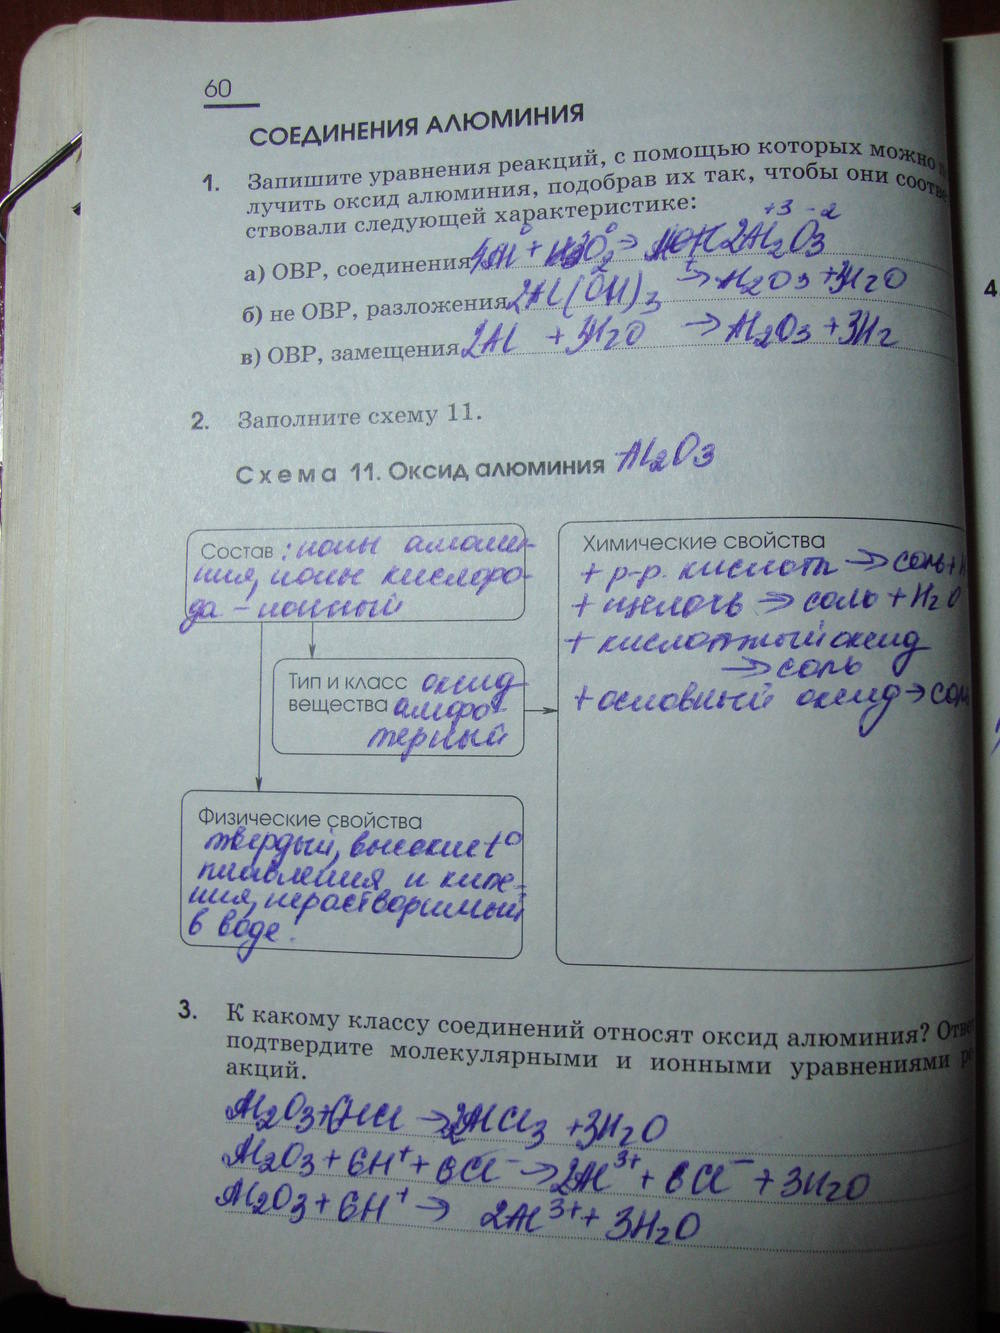 60
СОЕДИНЕНИЯ АЛЮМИНИЯ
1. Запишите уравнения реакций, с помощью которых можно п
лучить оксид алюминия, подобрав их так, чтобы они соотве
ствовали следующей характеристике:
+3 -2
а) ОВР, соединения 2Al₂O₃
б) не ОВР, разложения 2Al(OH)₃ → Al₂O₃ + 3H₂O
в) ОВР, замещения 2Al + 3H₂O → Al₂O₃ + 3H₂
4
2. Заполните схему 11.
Схема 11. Оксид алюминия Al₂O₃
Состав: ионы алюми-
ния, ионы кислоро-
да - ионный
Тип и класс оксид
вещества амфо-
терный
Физические свойства
твердый, высокие t°
плавления и кипе-
ния, нерастворимый
в воде.
Химические свойства
+ р-р. кислот → соль + H
+ щелочь → соль + H₂O
+ кислотный оксид
→ соль
+ основный оксид → соль
3. К какому классу соединений относят оксид алюминия? Отве
подтвердите молекулярными и ионными уравнениями ре
акций.
Al₂O₃ + 6HCl → 2AlCl₃ + 3H₂O
Al₂O₃ + 6H⁺ + 6Cl⁻ → 2Al³⁺ + 6Cl⁻ + 3H₂O
Al₂O₃ + 6H⁺ → 2Al³⁺ + 3H₂O